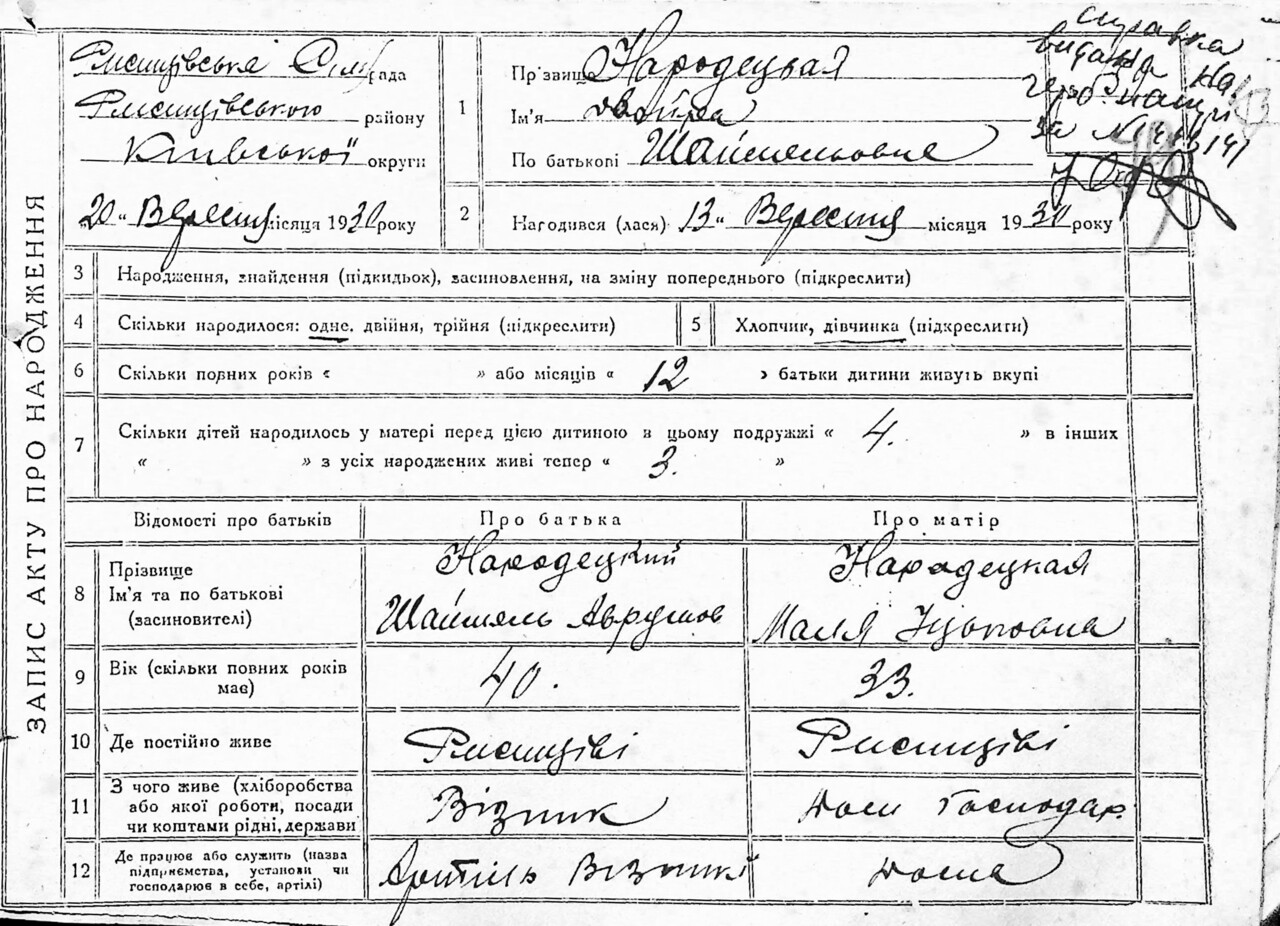 ЗАПИС АКТУ ПРО НАРОДЖЕННЯ
Ржищівська Сіль рада
Ржищівського району
Київської округи
"20" Вересня місяця 1930 року
1
Пр'звище Народецькая
Ім'я Двойра
По батькові Шаймельовна
справка
видана на
за №
2
Народився (лася) 13" Вересня місяця 1930 року
3 Народження, знайдення (підкидьох), засиновлення, на зміну попереднього (підкреслити)
4 Скільки народилося: одне. двійня, трійня (підкреслити)
5 Хлопчик, дівчинка (підкреслити)
6 Скільки повних років « » або місяців « 12 » батьки дитини живуть вкупі
7 Скільки дітей народилось у матері перед цією дитиною в цьому подружжі « 4. » в інших
« » з усіх народжених живі тепер « 3. »
Відомості про батьків Про батька Про матір
8
Прізвище
Ім'я та по батькові
(засиновителі)
Народецкий
Шаймель Аврумов
Народецкая
Маля Ицьковна
9 Вік (скільки повних років має) 40. 33.
10 Де постійно живе Ржищіві Ржищіві
11
З чого живе (хліборобства
або якої роботи, посади
чи коштами рідні, держави
Візник
Дом Господар
12
Де працює або служить (назва
підприємства, установи чи
господарює в себе, артілі)
Артіль Візникі
Дома